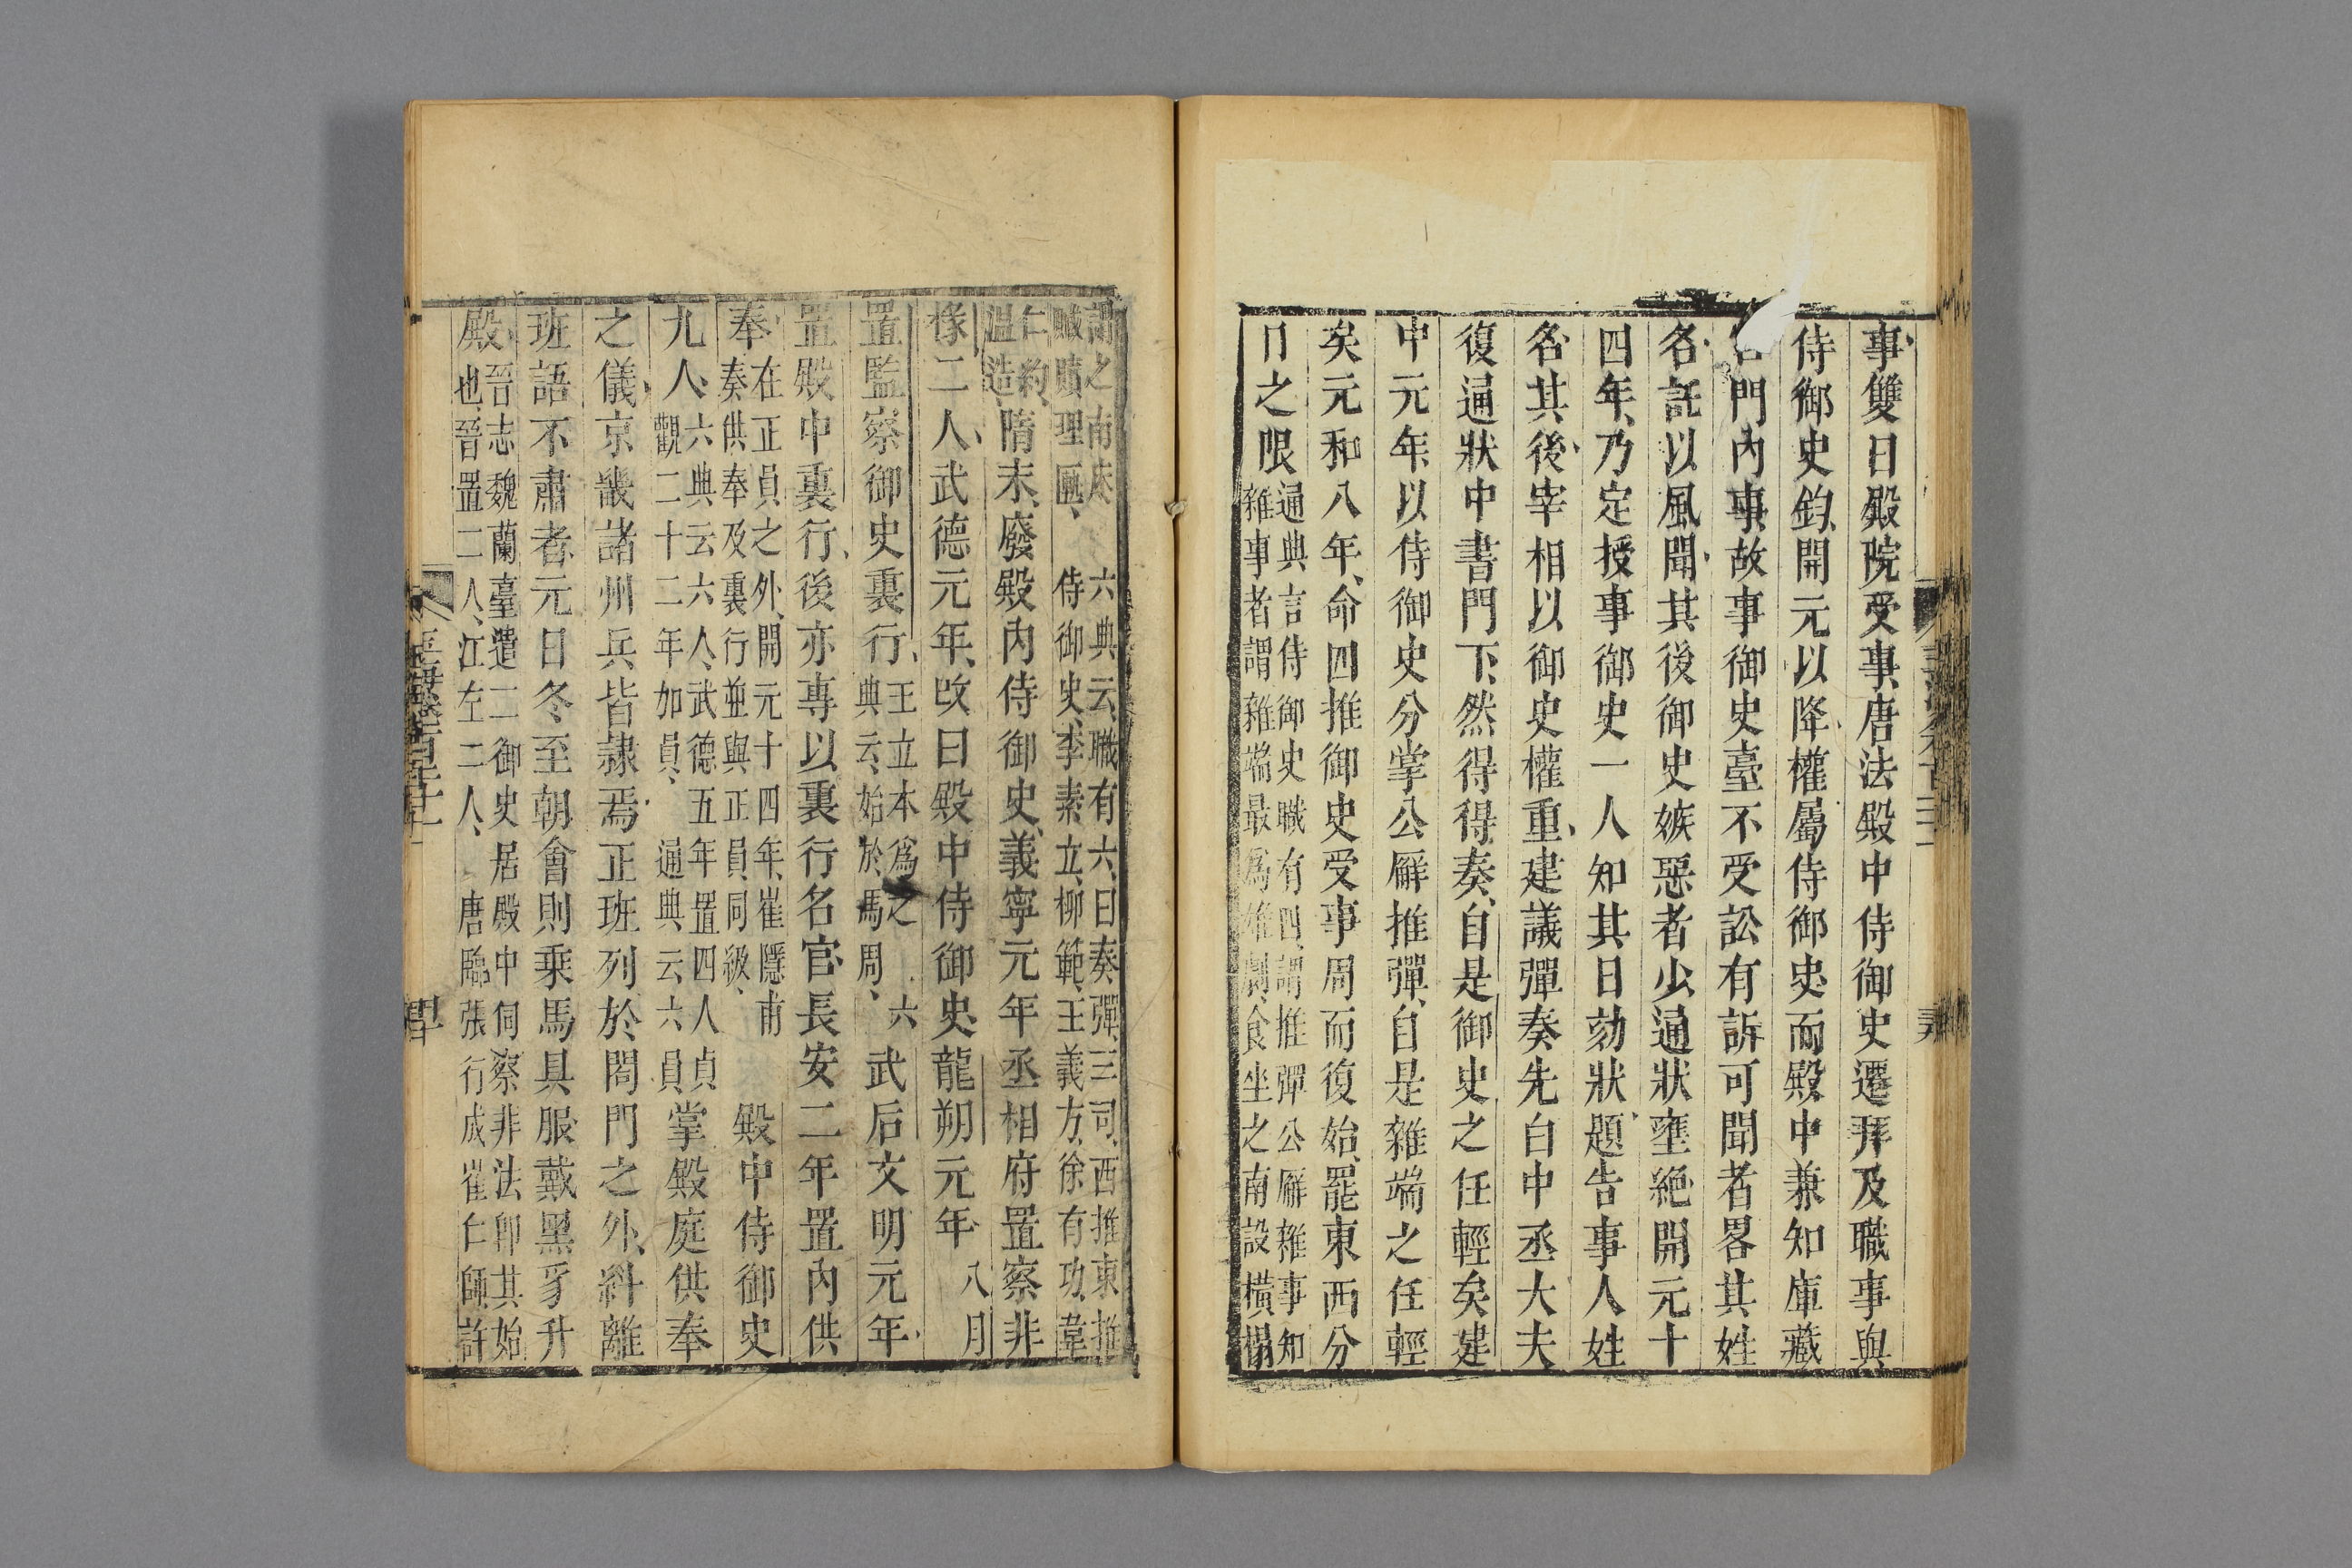 事雙日殿院受事唐法殿中侍御史遷拜及職事與
侍御史鈞開元以降權屬侍御史而殿中兼知庫藏
門內事故事御史臺不受訟有訴可聞者畧其姓
名託以風聞其後御史嫉惡者少通狀壅絕開元十
四年乃定授事御史一人知其日劾狀題告事人姓
名其後宰相以御史權重建議彈奏先白中丞大夫
復通狀中書門下然得得奏自是御史之任輕矣建
中元年以侍御史分掌公廨推彈自是雜端之任輕
矣元和八年命四推御史受事周而復始罷東西分
日之限
通典言侍御史職有四謂推彈公廨雜事知
雜事者謂雜端最爲雄劇食坐之南設橫榻
謂之南床 六典云職有六曰奏彈三司西推東推
贓贖理匭 侍御史李素立柳範王義方徐有功韋
仁約
溫造
隋末廢殿內侍御史義寧元年丞相府置察非
掾二人武德元年改曰殿中侍御史龍朔元年
八月
置監察御史裏行
王立本爲之 六
典云始於馬周
武后文明元年
置殿中裏行後亦專以裏行名官長安二年置內供
奉
在正員之外開元十四年崔隱甫
奏供奉及裏行並與正員同級
殿中侍御史
九人
六典云六人武德五年置四人貞
觀二十二年加員 通典云六員
掌殿庭供奉
之儀京畿諸州兵皆隷焉正班列於閤門之外糾離
班語不肅者元日冬至朝會則乘馬具服戴黑豸升
殿
晉志魏蘭臺遣二御史居殿中伺察非法卽其始
也晉置二人江左二人 唐臨張行成崔仁師許